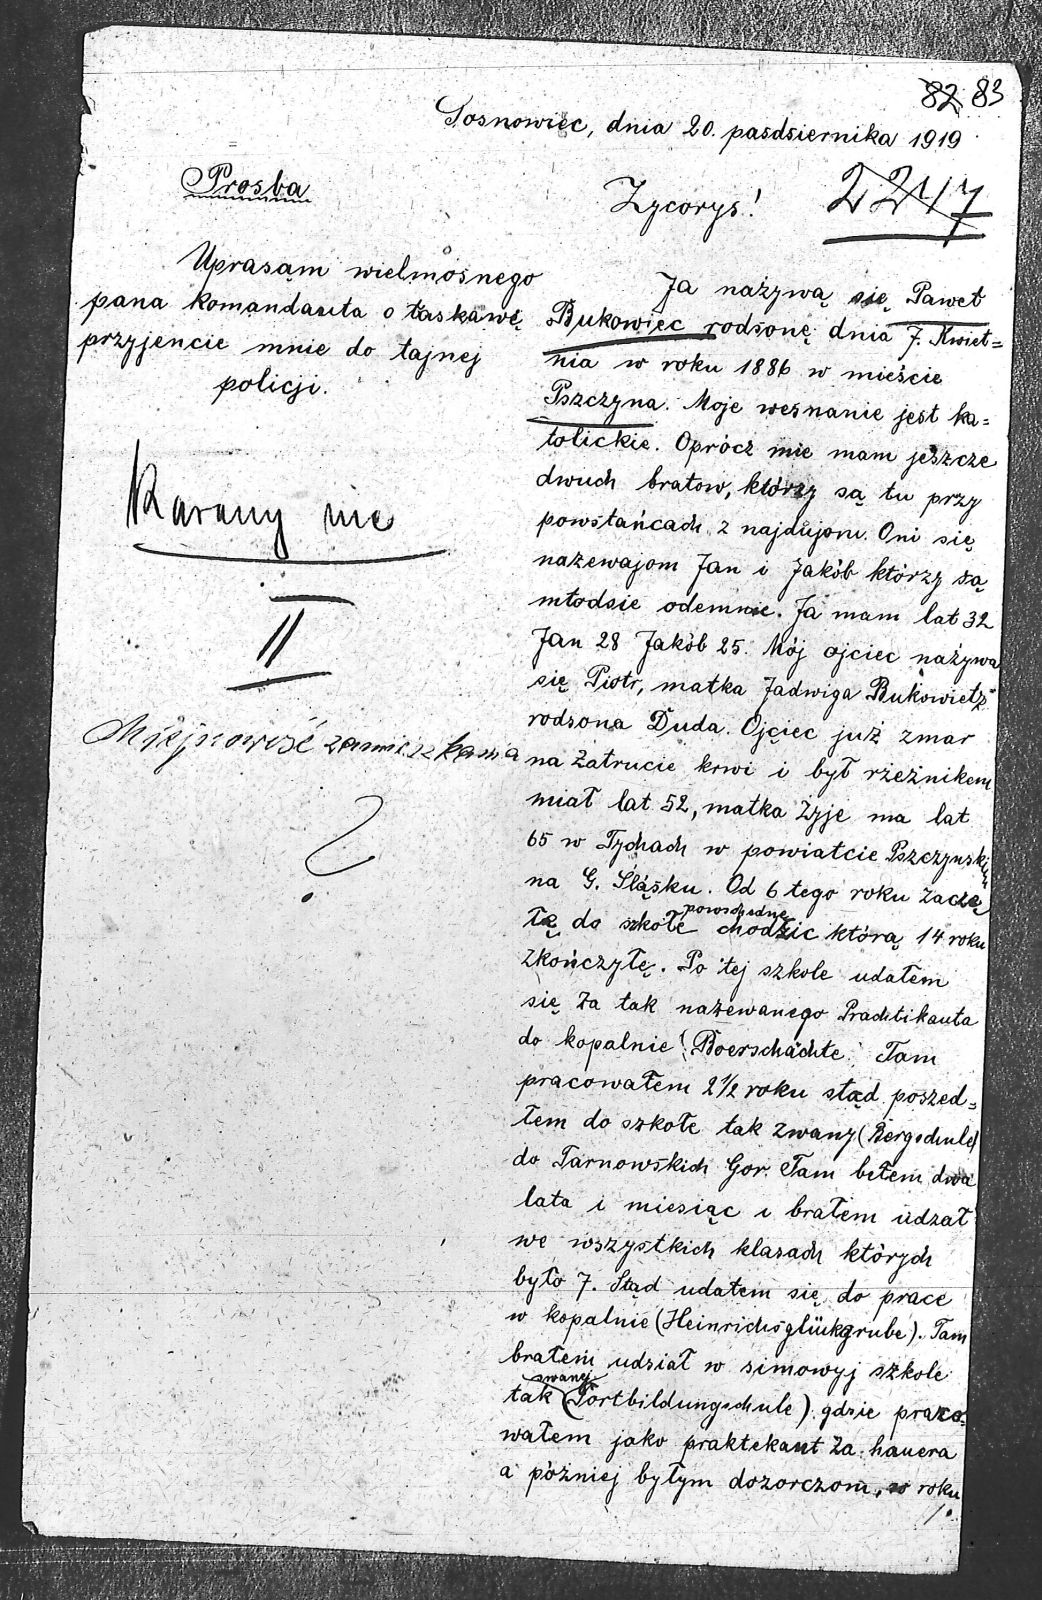 82 83
Sosnowiec, dnia 20. pasdsiernika 1919
Prosba
Uprasąm wielmosnego
pana komandanta o łaskawę
przyjencie mnie do tajnej
policji.
Karany nie
II
Miejscowość zamieszkania
?
Zycorys!
2247
Ja nażywą się Paweł
Bukowiec rodsonę dnia 7. Kwiet=
nia w roku 1886 w mieście
Pszczyna. Moje wesnanie jest ka=
tolickie. Oprócz mie mam jeszcze
dwuch bratow, którzy są tu przy
powstańcach z najdujom. Oni się
nażewajom Jan i Jakób którzy są
młodsie odemnie. Ja mam lat 32
Jan 28 Jakób 25. Mój ojciec nażywa
się Piotr, matka Jadwiga Bukowietz
rodsona Duda. Ojciec już zmar
na zatrucie krwi i był rzeźnikem
miał lat 52, matka żyje ma lat
65 w Tychach w powiatcie Pszczynskim
na G. Śląsku. Od 6 tego roku zaczę
łę do szkołe powschednę chodzic którą 14 roku
zkończyłę. Po tej szkole udałem
się za tak nażewanego Prachtikanta
do kopalnie (Boerschächte. Tam
pracowałem 2 1/2 roku stąd poszed=
łem do szkołe tak zwany (Bergschule)
do Tarnowskich Gor. Tam bełem dwa
lata i miesiąc i brałem udzał
we wszystkich klasach których
było 7. Stąd udałem się do prace
w kopalnie (Heinrichsglückgrube). Tam
brałem udział w simowyj szkole
tak swanej (Fortbildungschule) gdzie praco=
wałem jako praktekant za hauera
a później byłym dozorczom, w roku
/.